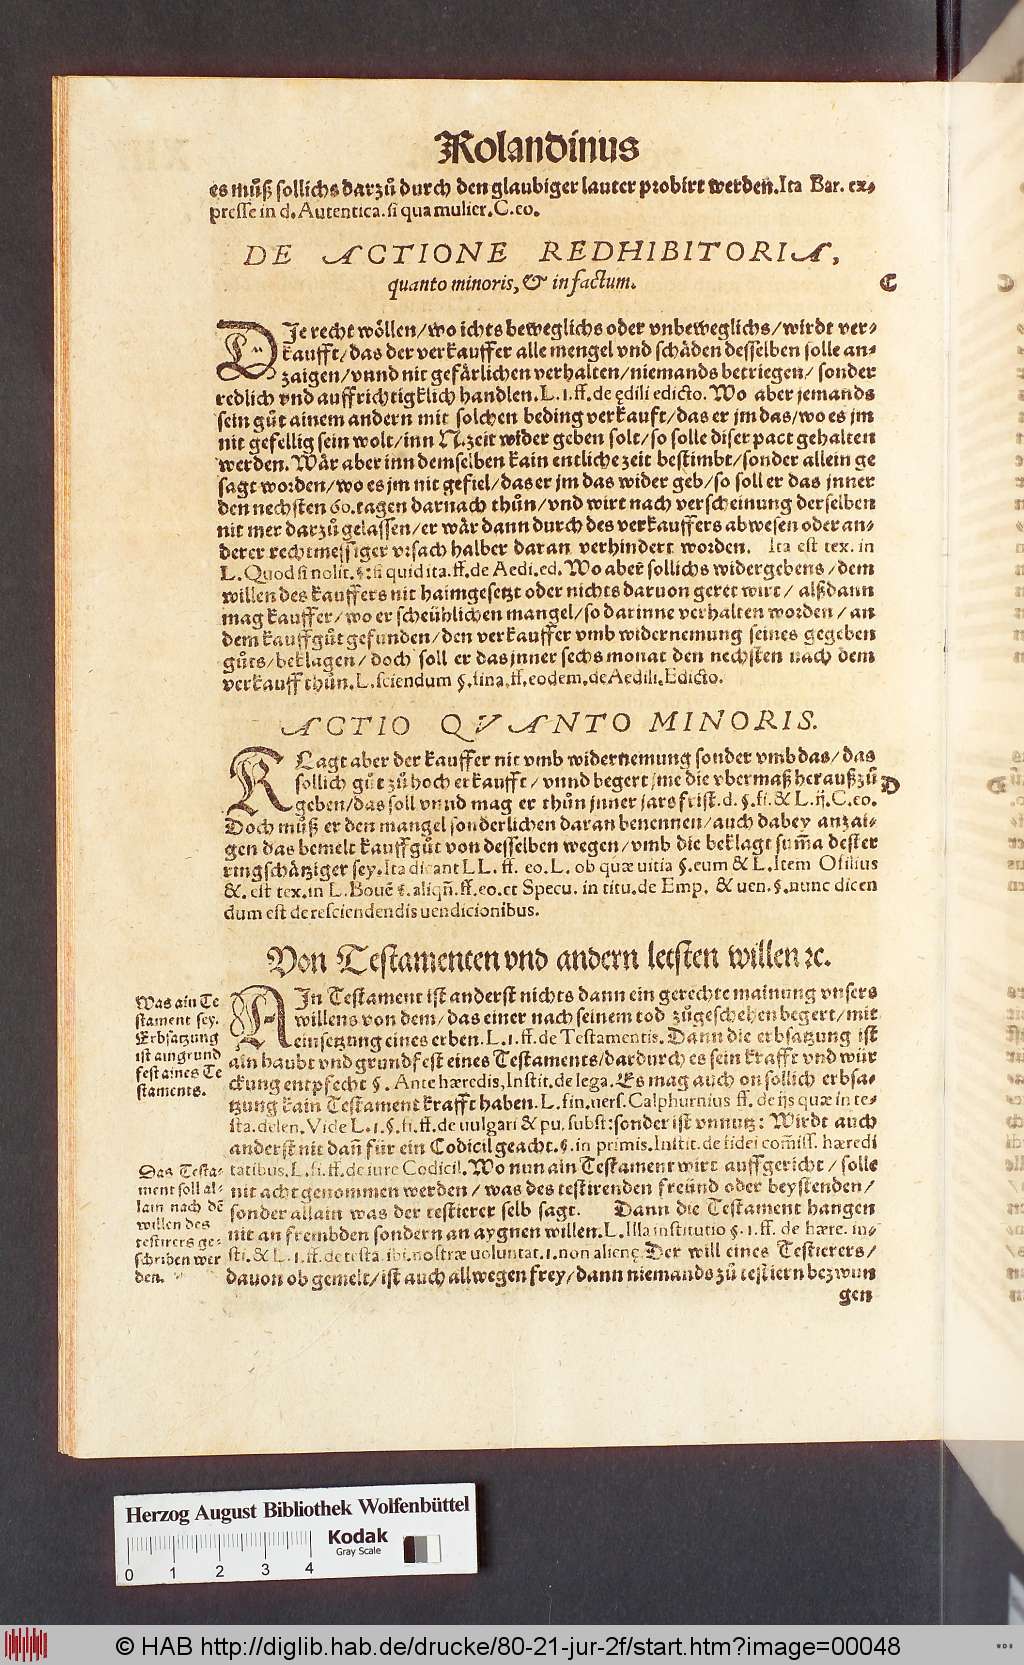 Rolandinus
es můß sollichs darzů durch den glaubiger lauter probirt werden. Ita Bar. ex-
presse in d. Autentica. si qua mulier. C. eo.
DE ACTIONE REDHIBITORIA,
quanto minoris, & in factum.
C
DJe recht wöllen/wo ichts beweglichs oder vnbeweglichs/wirdt ver-
kaufft/das der verkauffer alle mengel vnd schäden desselben solle an-
zaigen/vnnd nit gefärlichen verhalten/niemands betriegen/ sonder
redlich vnd auffrichtigklich handlen. L. 1. ff. de ędili edicto. Wo aber jemands
sein gůt ainem andern mit solchen beding verkauft/das er jm das/wo es jm
nit gefellig sein wolt/inn N. zeit wider geben solt/so solle diser pact gehalten
werden. Wär aber inn demselben kain entliche zeit bestimbt/sonder allein ge
sagt worden/wo es jm nit gefiel/das er jm das wider geb/so soll er das jnner
den nechsten 60. tagen darnach thůn/vnd wirt nach verscheinung derselben
nit mer darzů gelassen/er wär dann durch des verkauffers abwesen oder an-
derer rechtmessiger vrsach halber daran verhindert worden. Ita est tex. in
L. Quod si nolit. §: si quid ita. ff. de Aedi. ed. Wo aber̃ sollichs widergebens/dem
willen des kauffers nit haimgesetzt oder nichts daruon geret wirt/ alßdann
mag kauffer/wo er scheühlichen mangel/so darinne verhalten worden/an
dem kauffgůt gefunden/den verkauffer vmb widernemung seines gegeben
gůts/beklagen/doch soll er das jnner sechs monat den nechsten nach dem
verkauff thůn. L. sciendum §. fina. ff. eodem. de Aedili. Edicto.
ACTIO QVANTO MINORIS.
KLagt aber der kauffer nit vmb widernemung sonder vmb das/das
sollich gůt zů hoch erkaufft/vnnd begert jme die vbermaß heraußzů D
geben/das soll vnnd mag er thůn jnner jars frist. d. §. fi. & L. ij. C. eo.
Doch můß er den mangel sonderlichen daran benennen/auch dabey anzai-
gen das bemelt kauffgůt von desselben wegen/vmb die beklagt sum̃a dester
ringschätziger sey. Ita dicant LL. ff. eo. L. ob quæ uitia §. cum & L. Item Ofilius
&. est tex. in L. Bouẽ §. aliqñ. ff. eo. et Specu. in titu. de Emp. & uen. §. nunc dicen
dum est de resciendendis uendicionibus.
Von Testamenten vnd andern letsten willen ꝛc.
Was ain Te
stament sey.
Erbsatzung
ist ain grund
fest aines Te
staments.
AIn Testament ist anderst nichts dann ein gerechte mainung vnsers
willens von dem/das einer nach seinem tod zůgeschehen begert/mit
einsetzung eines erben. L. 1. ff. de Testamentis. Dann die erbsatzung ist
ain haubt vnd grundfest eines Testaments/dardurch es sein krafft vnd wür
ckung entpfecht §. Ante hæredis, Instit. de lega. Es mag auch on sollich erbsa-
tzung kain Testament krafft haben. L. fin. uers. Calphurnius ff. de ijs quæ in te-
sta. delen. Vide L. 1. §. fi. ff. de uulgari & pu. subst: sonder ist vnnutz: Wirdt auch
anderst nit dañ für ein Codicil geacht. §. in primis. Instit. de fidei com̃iss. hæredi
tatibus. L. fi. ff. de iure Codicil. Wo nun ain Testament wirt auffgericht/ solle
nit acht genommen werden/was des testirenden freünd oder beystenden/
sonder allain was der testierer selb sagt. Dann die Testament hangen
nit an frembden sondern an aygnen willen. L. Illa institutio §. 1. ff. de hære. in-
sti. & L. 1. ff. de testa. ibi. nostræ uoluntat. 1. non alienę. Der will eines Testierers/
dauon ob gemelt/ist auch allwegen frey/dann niemands zů testiern bezwun
gen
Das Testa-
ment soll al-
lain nach dẽ
willen des
testirers ge-
schriben wer
den.
Herzog August Bibliothek Wolfenbüttel
Kodak
Gray Scale
0 1 2 3 4
© HAB http://diglib.hab.de/drucke/80-21-jur-2f/start.htm?image=00048